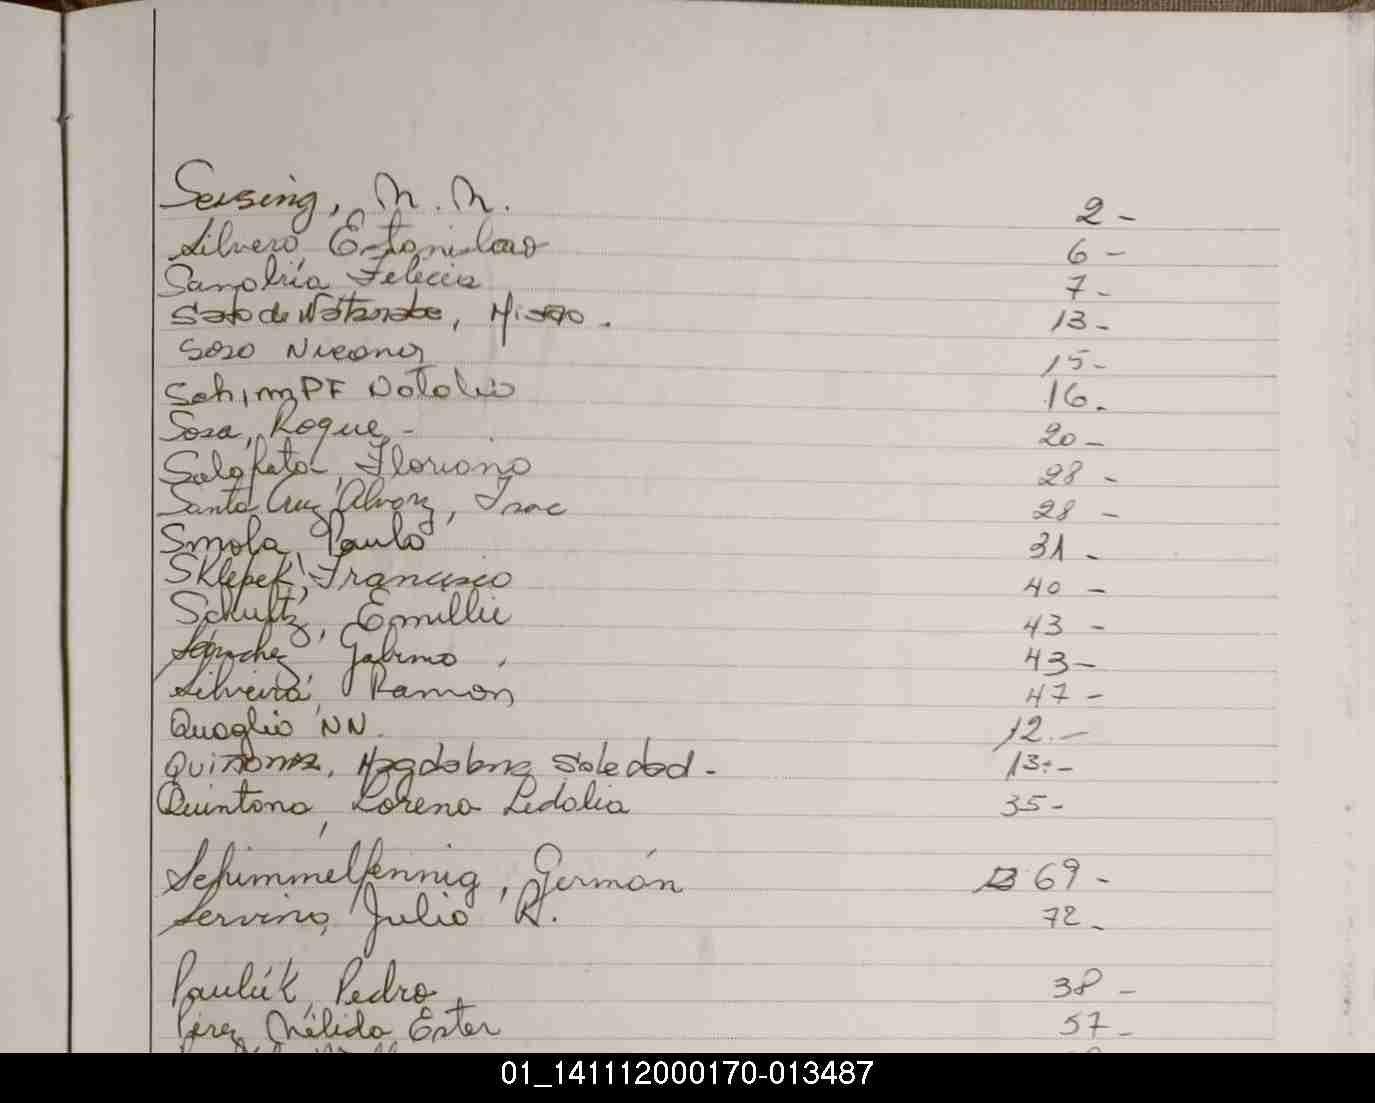 Sersing, N. N. 2 -
Silvero, Estanislao 6 -
Sanabria Felecia 7 -
Sato de Watanabe, Misao. 13 -
Soso Nicanor 15 -
SchimPF Natalio 16.
Sosa, Roque - 20 -
Floriano 28 -
Santa Cruz Alvarez, Isac 28 -
Smola, Paulo 31 -
Sklepek, Francisco 40 -
Schultz, Emillie 43 -
Sánchez Gabino, 43 -
Silveira, Ramon 47 -
Quaglio NN. 12. -
Quiñones, Magdalena Soledad - 13. -
Quintana, Lorena Ledalia 35 -
Schimmelfennig, Germán 69 -
Servino, Julio R. 72 -
Pauluk, Pedro 38 -
Pérez Nélida Ester 57 -
01_141112000170-013487